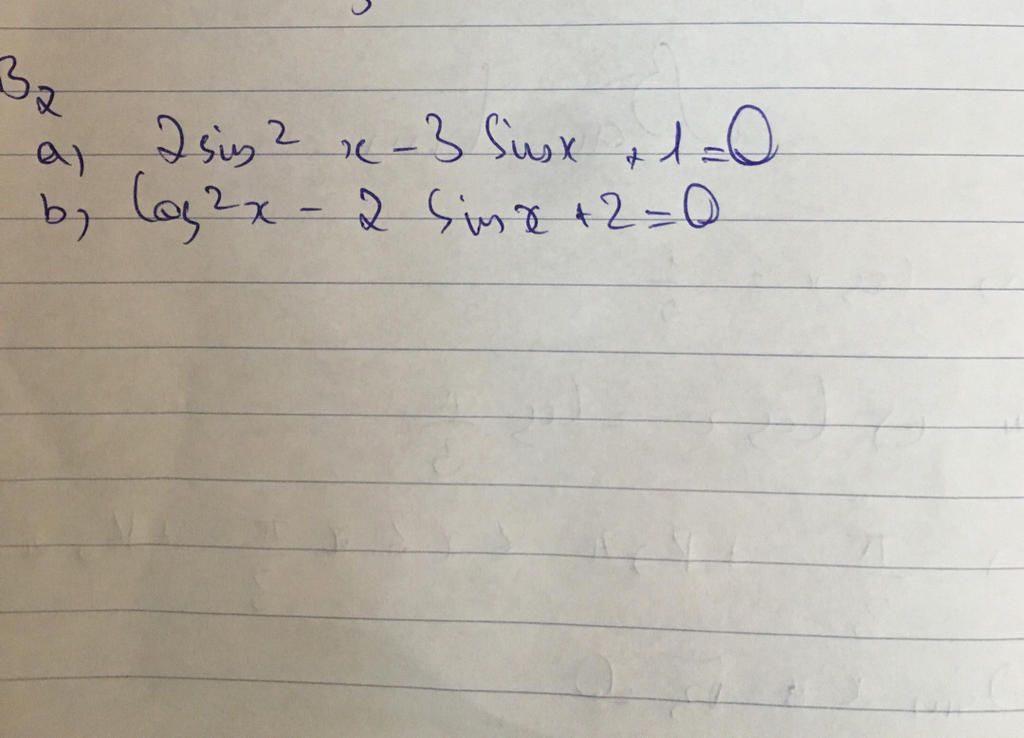 B2
a, 2sin² x - 3 Sinx + 1 = 0
b, Cos²x - 2 Sinx + 2 = 0